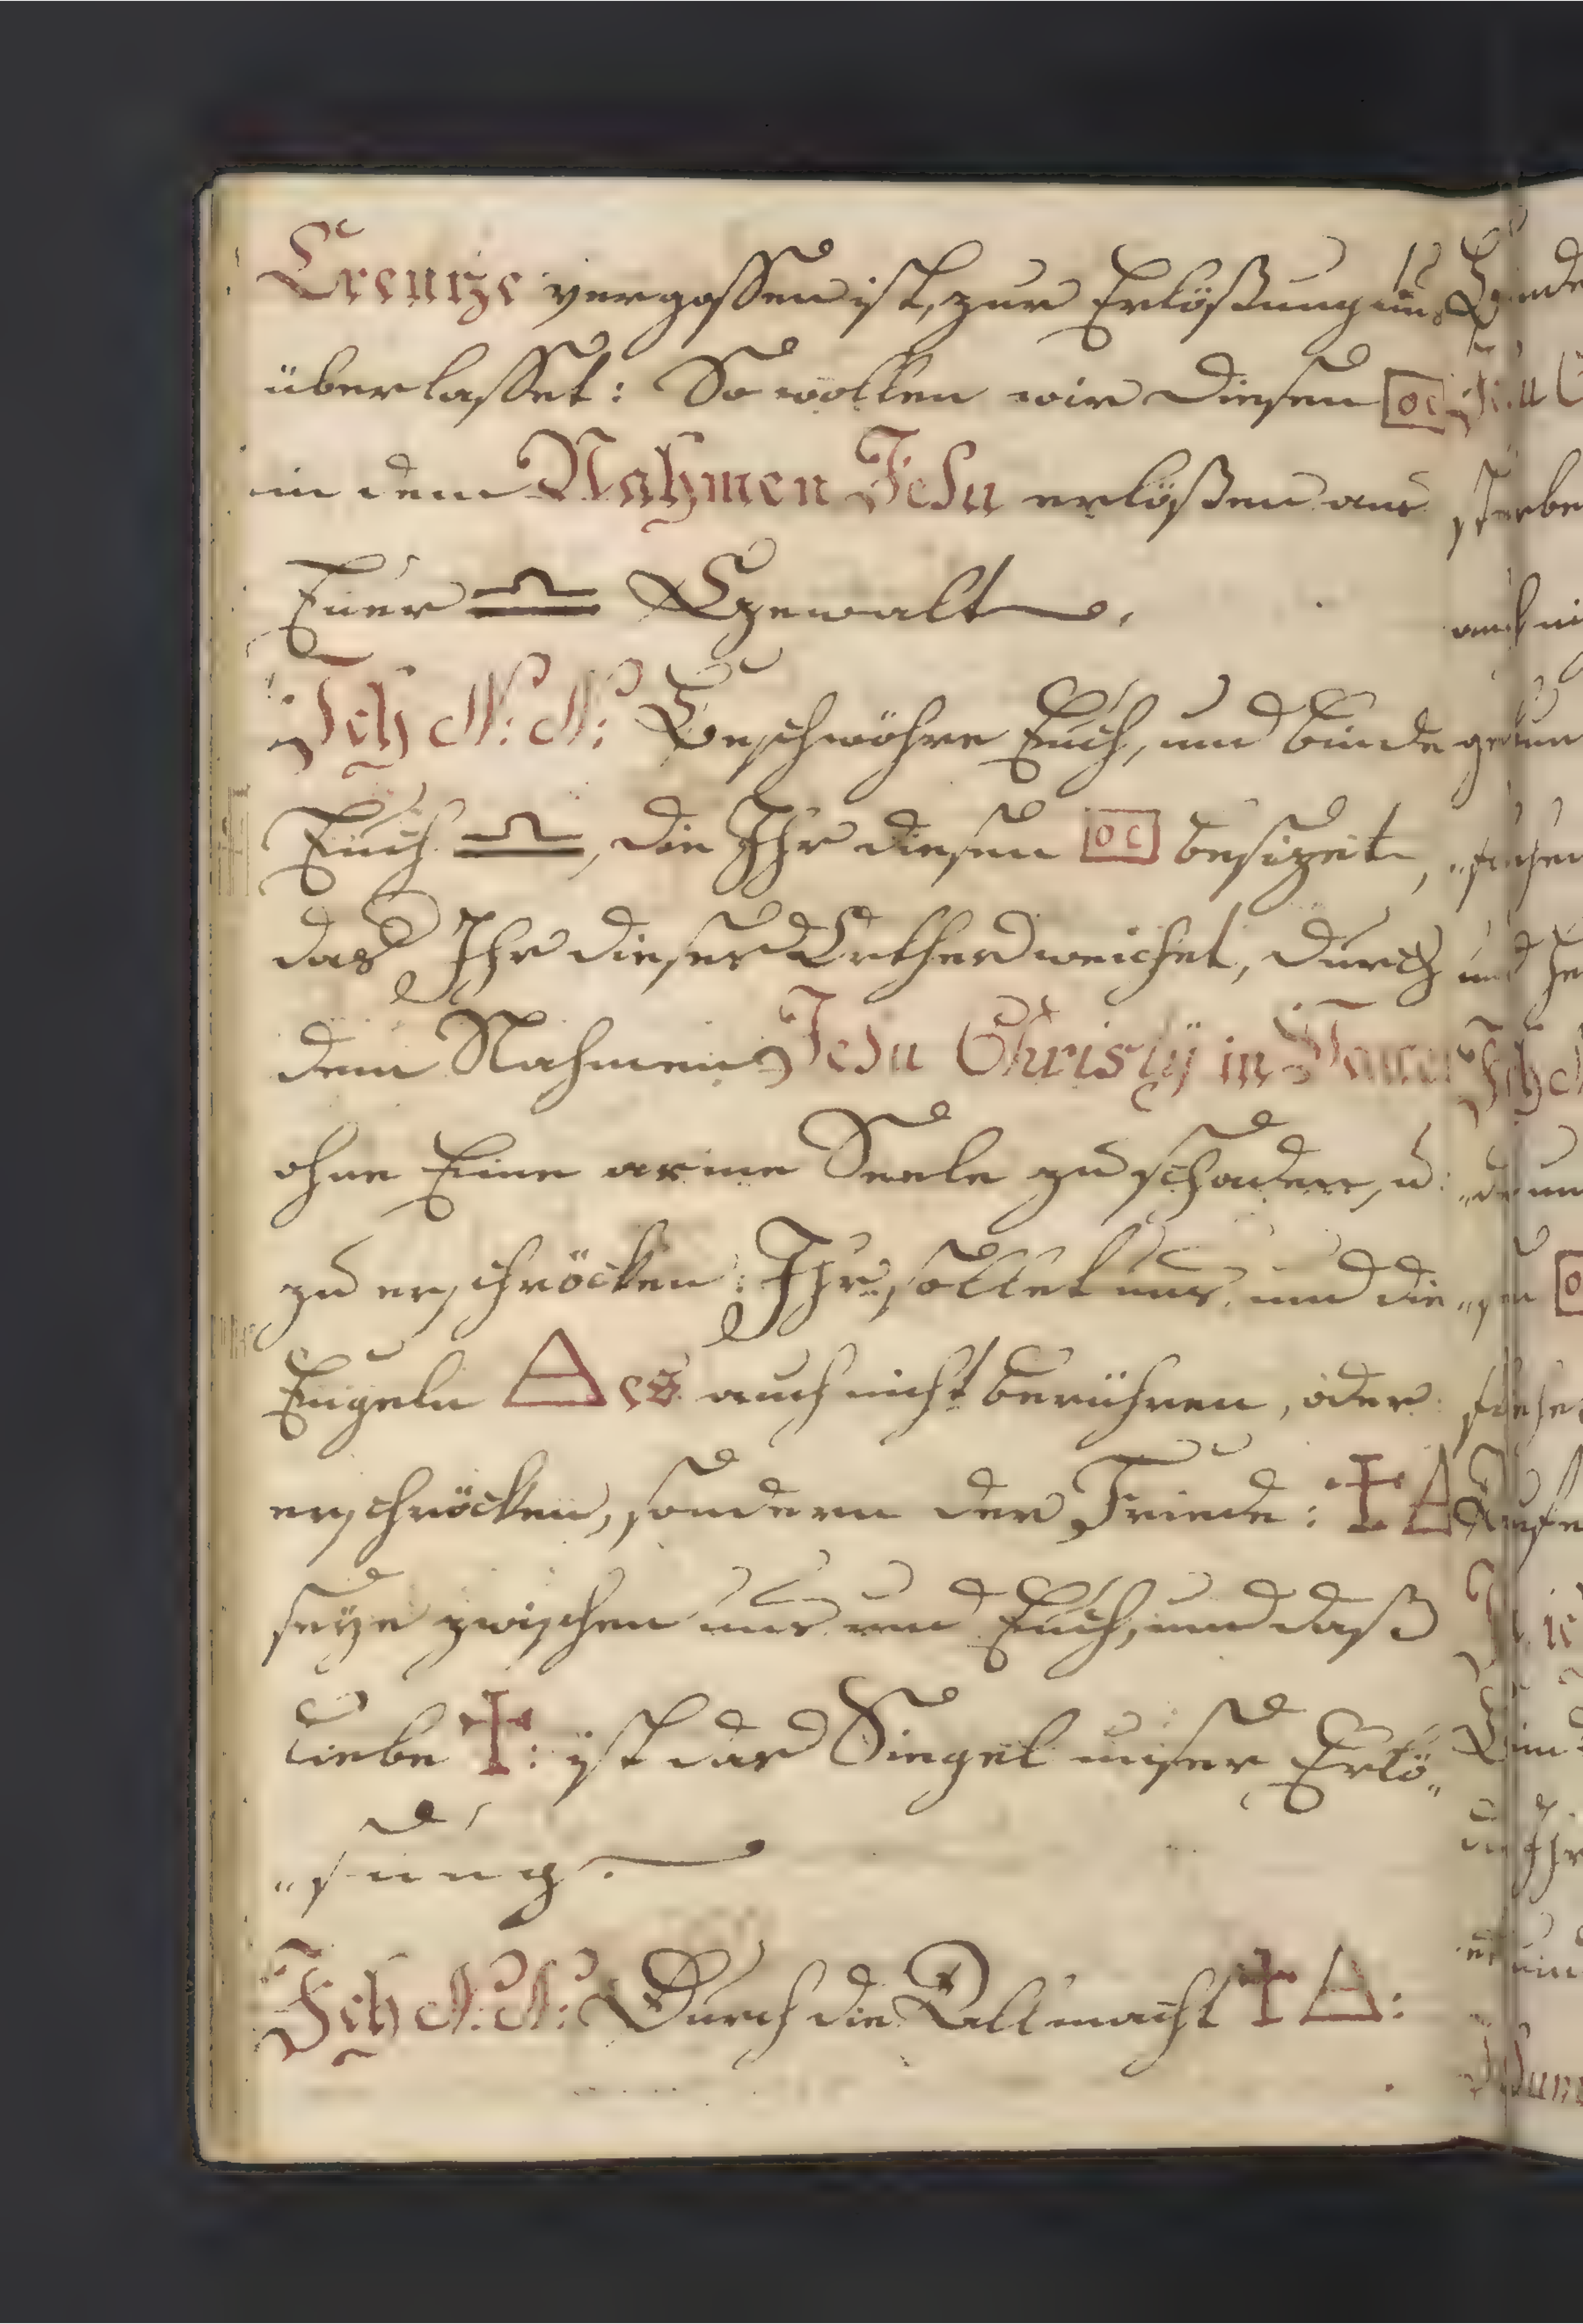 Creutze vergossen ist, zur Erlößung uns
überlasset: So wollen wir diesen
in dem Nahmen Jesu erlößen aus
Euer ♎ Gewalt.
Ich N: N: Beschwöhre Euch, und binde
Euch ♎, die Ihr diesen besizet,
das Ihr dieser Orthen weichet, durch
dem Nahmen Jesu Christÿ in
ohne Eine arme Seele zu schaden, u:
zu erschröcken: Ihr sollet uns, und die
Engeln △ auch nicht berühren, oder
erschröcken, sondern der Friede: ✝ △
seÿe zwischen uns und Euch, und daß
Liebe ✝: ist das Siegel unser Erlö„
„sung.
Ich N: N: Durch die Allmacht ✝ △: